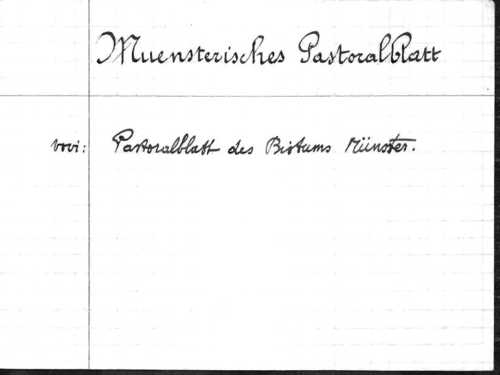 Muensterisches Pastoralblatt
vovi: Pastoralblatt des Bistums Münster.